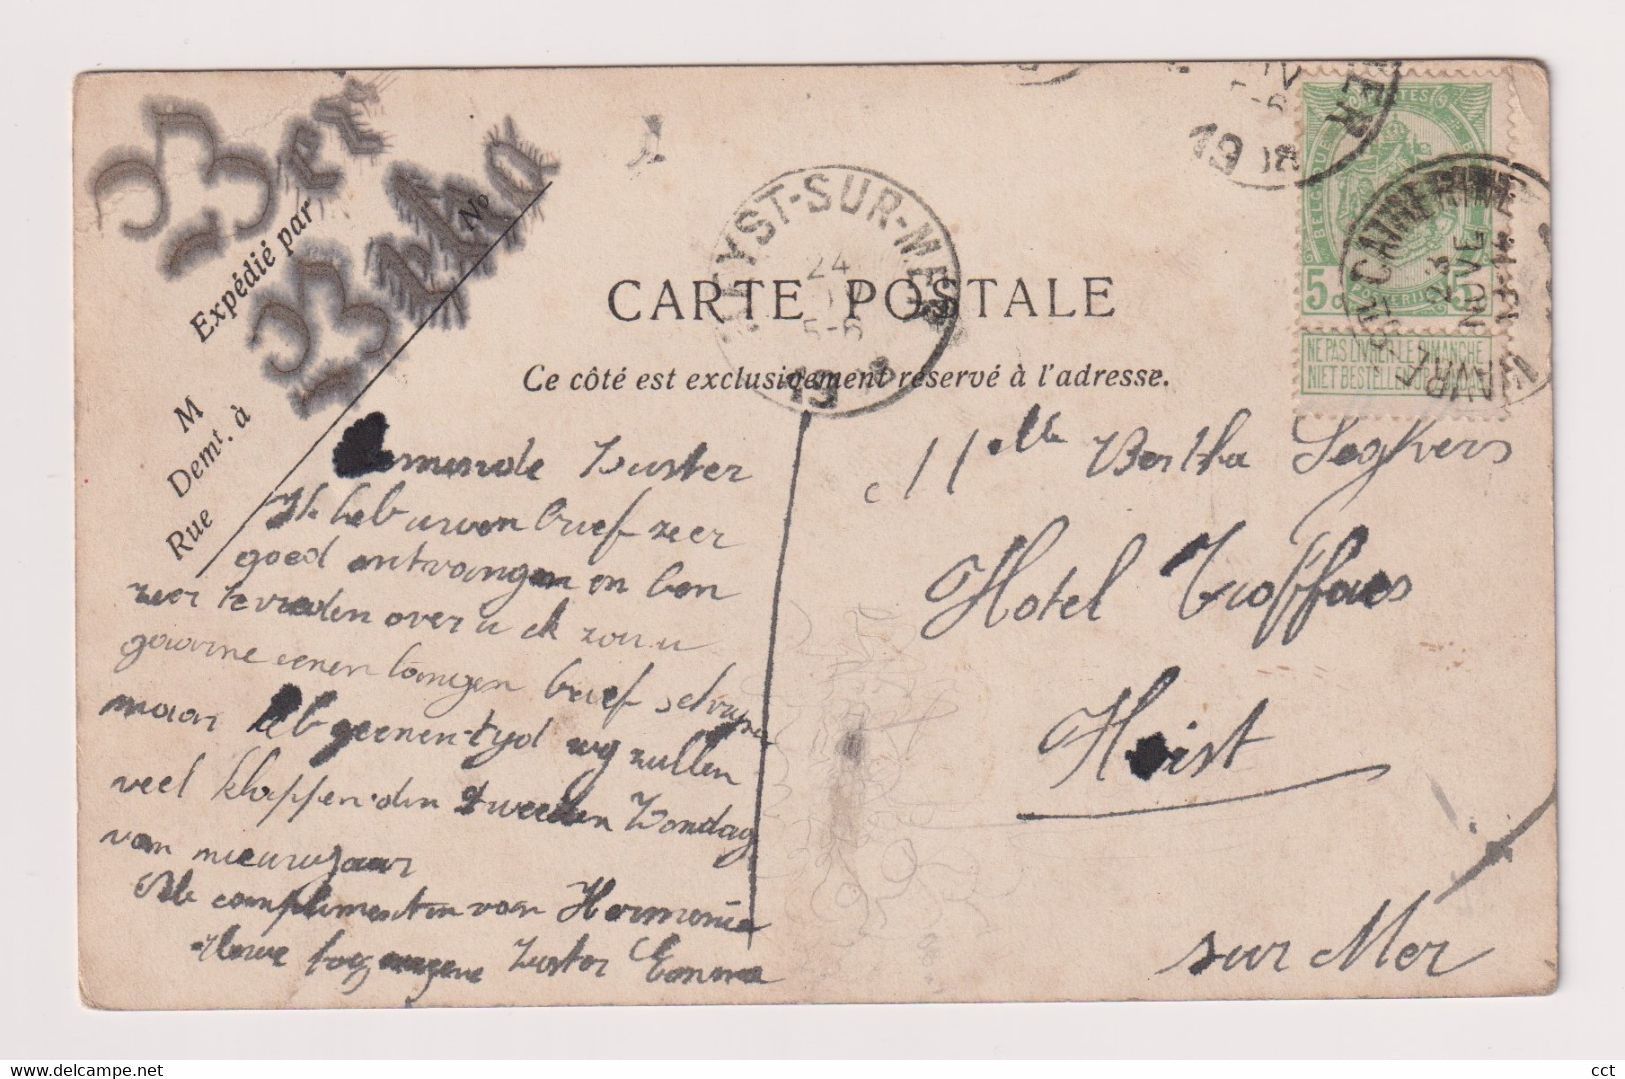 Expédié par
No
M
Demt. à
Rue
HEYST-SUR-MER
24
5-6
19
CARTE POSTALE
Ce côté est exclusivement réservé à l'adresse.
19 08
BELGIQUE
5 c 5
NE PAS LIVRER LE DIMANCHE
NIET BESTELLEN OP ZONDAG
WAVRE-Ste CATHERINE
23
NOVE
13-14
Zuster
Ik heb uwen brief zeer
goed ontvangen en ben
zeer tevreden over u ik zou u
gaarne eenen langen brief schrijven
maar heb geenen tijd wij zullen
veel klappen den tweeden Zondag
van nieuwjaar
De complimenten van Hermonie
Uwe toegenegene Zuster Emma
Melle Bertha Seghers
Hotel Troffaes
Heist
sur Mer
cct